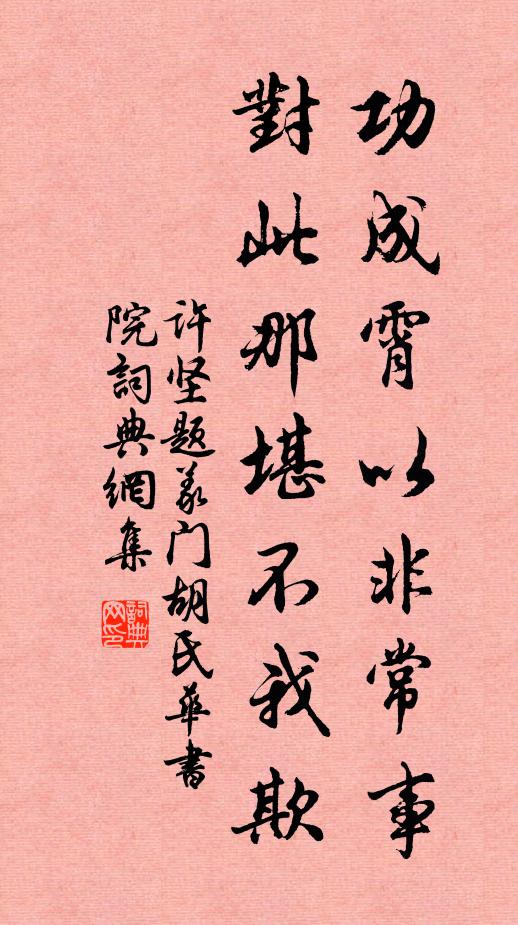 功成霄以非常事
對此那堪不我欺
许坚题义门胡氏華書
院詞典網集
詞典網印